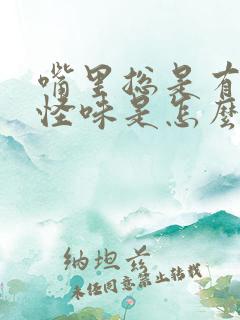 嘴里总是有
怪味是怎么
纳坦兹
未经同意禁止转载